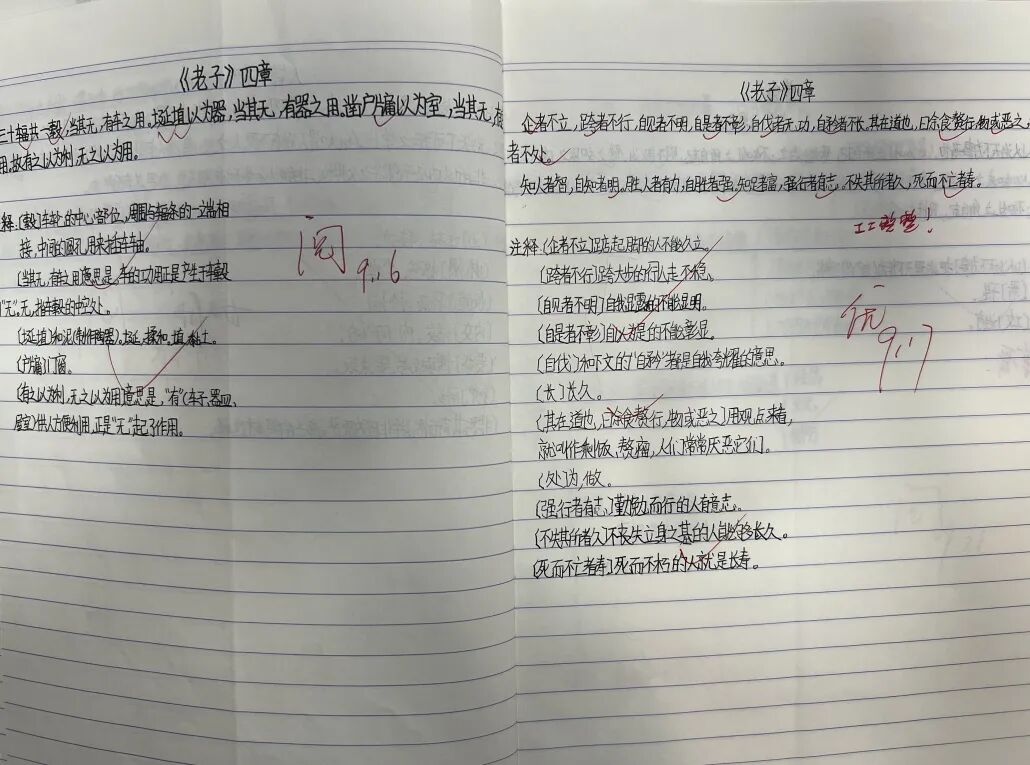 《老子》四章
三十辐共一毂,当其无,有车之用。埏埴以为器,当其无,有器之用。凿户牖以为室,当其无,有
用。故有之以为利,无之以为用。
释:〔毂〕车轮的中心部位,周围与辐条的一端相
接,中间的圆孔用来插车轴。
〔当其无,有车之用〕意思是,车的功用正是产生于车毂
"无"。无,指车毂的中空处。
〔埏埴〕和泥(制作陶器)。埏,揉和。埴,黏土。
〔户牖〕门窗。
〔有之以为利,无之以为用〕意思是,"有"(车子、器皿、
屋室)供人方便利用,正是"无"起了作用。
阅
9.16
《老子》四章
企者不立,跨者不行,自见者不明,自是者不彰,自伐者无功,自矜者不长。其在道也,曰余食赘行,物或恶之,
者不处。
知人者智,自知者明。胜人者有力,自胜者强。知足者富,强行者有志。不失其所者久,死而不亡者寿。
工工整整!
注释:〔企者不立〕踮起脚的人不能久立。
〔跨者不行〕跨大步的行走不稳。
〔自见者不明〕自我显露的不能显明。
〔自是者不彰〕自以为是的不能彰显。
〔自伐〕和下文的"自矜"都是自我夸耀的意思。
〔长〕长久。
〔其在道也,曰余食赘行,物或恶之〕用观点来看,
就叫作剩饭、赘瘤,人们常常厌恶它们。
〔处〕为,做。
〔强行者有志〕勤勉而行的人有意志。
〔不失其所者久〕不丧失立身之基的人能够长久。
〔死而不亡者寿〕死而不朽的人就是长寿。
优
9.17